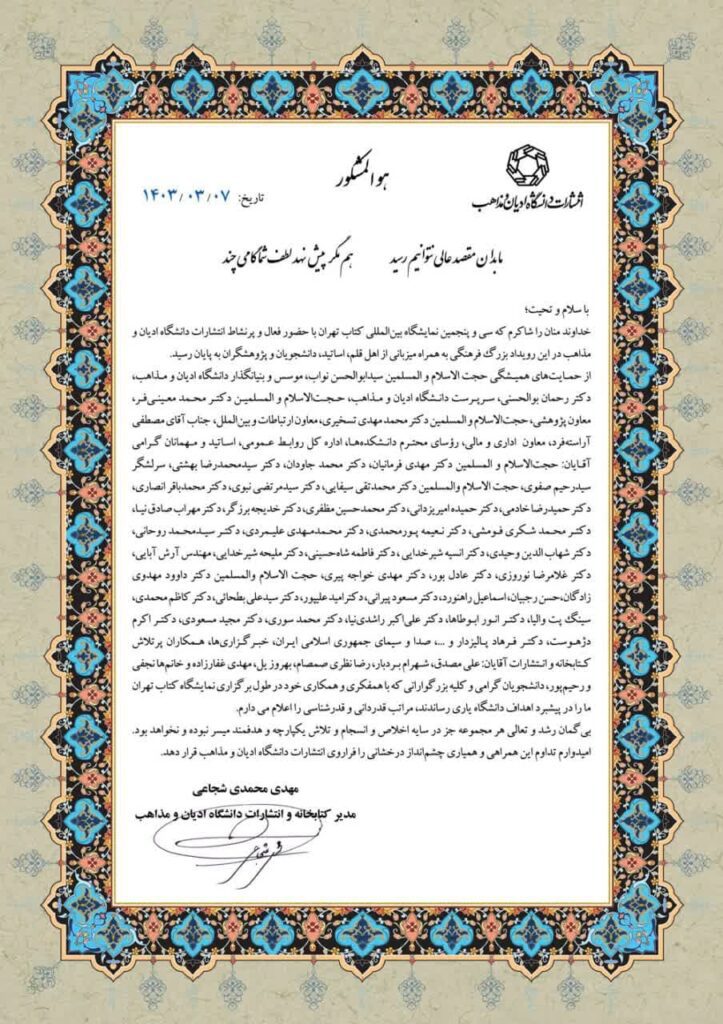 هو المشکور
انتشارات دانشگاه ادیان و مذاهب
تاریخ: ۱۴۰۳/۰۳/۰۷
ما بدان مقصد عالی نتوانیم رسید هم مگر پیش نهد لطف شما گامی چند
با سلام و تحیت؛
خداوند منان را شاکرم که سی و پنجمین نمایشگاه بین‌المللی کتاب تهران با حضور فعال و پرنشاط انتشارات دانشگاه ادیان و
مذاهب در این رویداد بزرگ فرهنگی به همراه میزبانی از اهل قلم، اساتید، دانشجویان و پژوهشگران به پایان رسید.
از حمایت‌های همیشگی حجت الاسلام و المسلمین سیدابوالحسن نواب، موسس و بنیانگذار دانشگاه ادیان و مذاهب،
دکتر رحمان بوالحسنی، سرپرست دانشگاه ادیان و مذاهب، حجت‌الاسلام و المسلمین دکتر محمد معینی‌فر،
معاون پژوهشی، حجت‌الاسلام و المسلمین دکتر محمد مهدی تسخیری، معاون ارتباطات و بین‌الملل، جناب آقای مصطفی
آراسته‌فرد، معاون اداری و مالی، رؤسای محترم دانشکده‌ها، اداره کل روابط عمومی، اساتید و مهمانان گرامی
آقایان: حجت‌الاسلام و المسلمین دکتر مهدی فرمانیان، دکتر محمد جاودان، دکتر سیدمحمدرضا بهشتی، سرلشگر
سیدرحیم صفوی، حجت الاسلام والمسلمین دکتر محمدتقی سبفایی، دکتر سیدمرتضی نبوی، دکتر محمدباقر انصاری،
دکتر حمیدرضا خادمی، دکتر حمیده امیریزدانی، دکتر محمدحسین مظفری، دکتر خدیجه برزگر، دکتر مهراب صادق نیا،
دکتر محمد شکری فومشی، دکتر نعیمه پورمحمدی، دکتر محمدمهدی علیمردی، دکتر سیدمحمد روحانی،
دکتر شهاب الدین وحیدی، دکتر انسیه شیرخدایی، دکتر فاطمه شاه‌حسینی، دکتر ملیحه شیرخدایی، مهندس آرش آبایی،
دکتر غلامرضا نوروزی، دکتر عادل پور، دکتر مهدی خواجه پیری، حجت الاسلام والمسلمین دکتر داوود مهدوی
زادگان، حسن رجبیان، اسماعیل راهنورد، دکتر مسعود پیرانی، دکترامید علیپور، دکتر سیدعلی بطحائی، دکتر کاظم محمدی،
سینگ پت والیا، دکتر انور ابوطاها، دکتر علی‌اکبر راشدی‌نیا، دکتر محمد سوری، دکتر مجید مسعودی، دکتر اکرم
دژهوست، دکتر فرهاد پالیزدار و ...، صدا و سیمای جمهوری اسلامی ایران، خبرگزاری‌ها، همکاران پرتلاش
کتابخانه و انتشارات آقایان: علی مصدق، شهرام بردبار، رضا نظری صمصام، بهروز یل، مهدی غفارزاده و خانم‌ها نجفی
و رحیم‌پور، دانشجویان گرامی و کلیه بزرگوارانی که با همفکری و همکاری خود در طول برگزاری نمایشگاه کتاب تهران
ما را در پیشبرد اهداف دانشگاه یاری رساندند، مراتب قدردانی و قدرشناسی را اعلام می دارم.
بی‌گمان رشد و تعالی هر مجموعه جز در سایه اخلاص و انسجام و تلاش یکپارچه و هدفمند میسر نبوده و نخواهد بود.
امیدوارم تداوم این همراهی و همیاری چشم‌انداز درخشانی را فراروی انتشارات دانشگاه ادیان و مذاهب قرار دهد.
مهدی محمدی شجاعی
مدیر کتابخانه و انتشارات دانشگاه ادیان و مذاهب